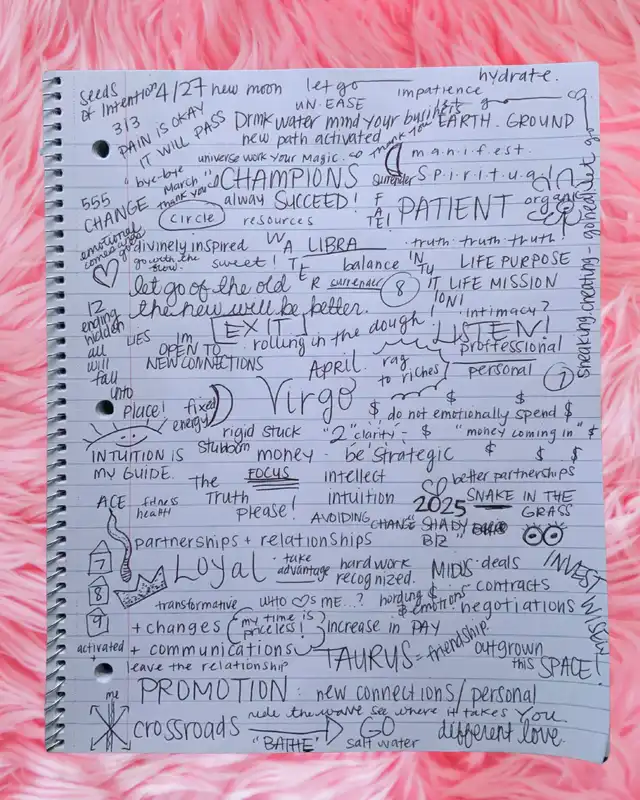 seeds of Intention 4/27 new moon let go hydrate.
UN.EASE impatience
313
PAIN IS OKAY
IT WILL PASS
Drink water mind your business let's g
EARTH. GROUND
new path activated
universe work your magic. so thank you
m.a.n.i.f.e.s.t.
"bye-bye March" thank you
CHAMPIONS
surrender
S.p.i.r.i.t.u.a.l
555
CHANGE
circle
alway SUCCEED!
resources
FATE!
PATIENT
organ
emotional comes after
divinely inspired
go with the flow.
sweet!
WATER
LIBRA
balance
INTUITION!
truth. truth. truth!
LIFE PURPOSE
LIFE MISSION
let go of the old
surrender
8
the new will be better.
intimacy?
sneaking. creating - go head let go
12 ending hidden
LIES
all will fall into place!
EXIT
rolling in the dough!
LISTEN!
Im OPEN TO
NEW CONNECTIONS
proffessional
personal
7
April.
rag to riches
fixed energy
Virgo
$ do not emotionally spend $
rigid stuck
stubborn
"2" clarity -
$ "money coming in" $
INTUITION IS
MY GUIDE.
money - be strategic
$ $ $
The Truth
FOCUS
please!
intellect
intuition
better partnerships
SO
2025
SNAKE IN THE GRASS
ACE
fitness
health
AVOIDING CHANGE
SHADY BIZ"
partnerships + relationships
7
8
9
activated
LOYAL
take advantage
hard work recognized.
MIDUS
deals
contracts
negotiations
INVEST WISELY!
transformative
WHO ♡S ME...?
hording $ emotions
+ changes
my time is priceless!
increase in PAY
+ communications
TAURUS = friendship!
outgrown this SPACE!
leave the relationship
PROMOTION: new connections/personal
me
crossroads
ride the wave see where it takes you.
"BATHE"
GO
salt water
different love.